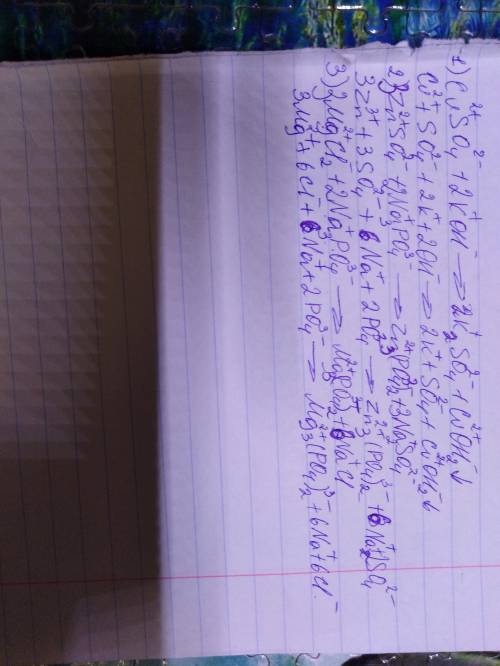 1) Cu²⁺SO₄²⁻ + 2K⁺OH⁻ → 2K₂⁺SO₄²⁻ + Cu²⁺OH₂⁻↓
Cu²⁺ + SO₄²⁻ + 2K⁺ + 2OH⁻ → 2K⁺ + SO₄²⁻ + Cu²⁺OH₂⁻↓
2) 3Zn²⁺SO₄²⁻ + 2Na₃⁺PO₄³⁻ → Zn₃²⁺(PO₄)₂³⁻ + 3Na₂⁺SO₄²⁻
3Zn²⁺ + 3SO₄²⁻ + 6Na⁺ + 2PO₄³⁻ → Zn₃²⁺(PO₄)₂³⁻ + 6Na⁺ + 3SO₄²⁻
3) 3Mg²⁺Cl₂⁻ + 2Na₃⁺PO₄³⁻ → Mg₃²⁺(PO₄)₂³⁻ + 6Na⁺Cl⁻
3Mg²⁺ + 6Cl⁻ + 6Na⁺ + 2PO₄³⁻ → Mg₃²⁺(PO₄)₂³⁻ + 6Na⁺ + 6Cl⁻.